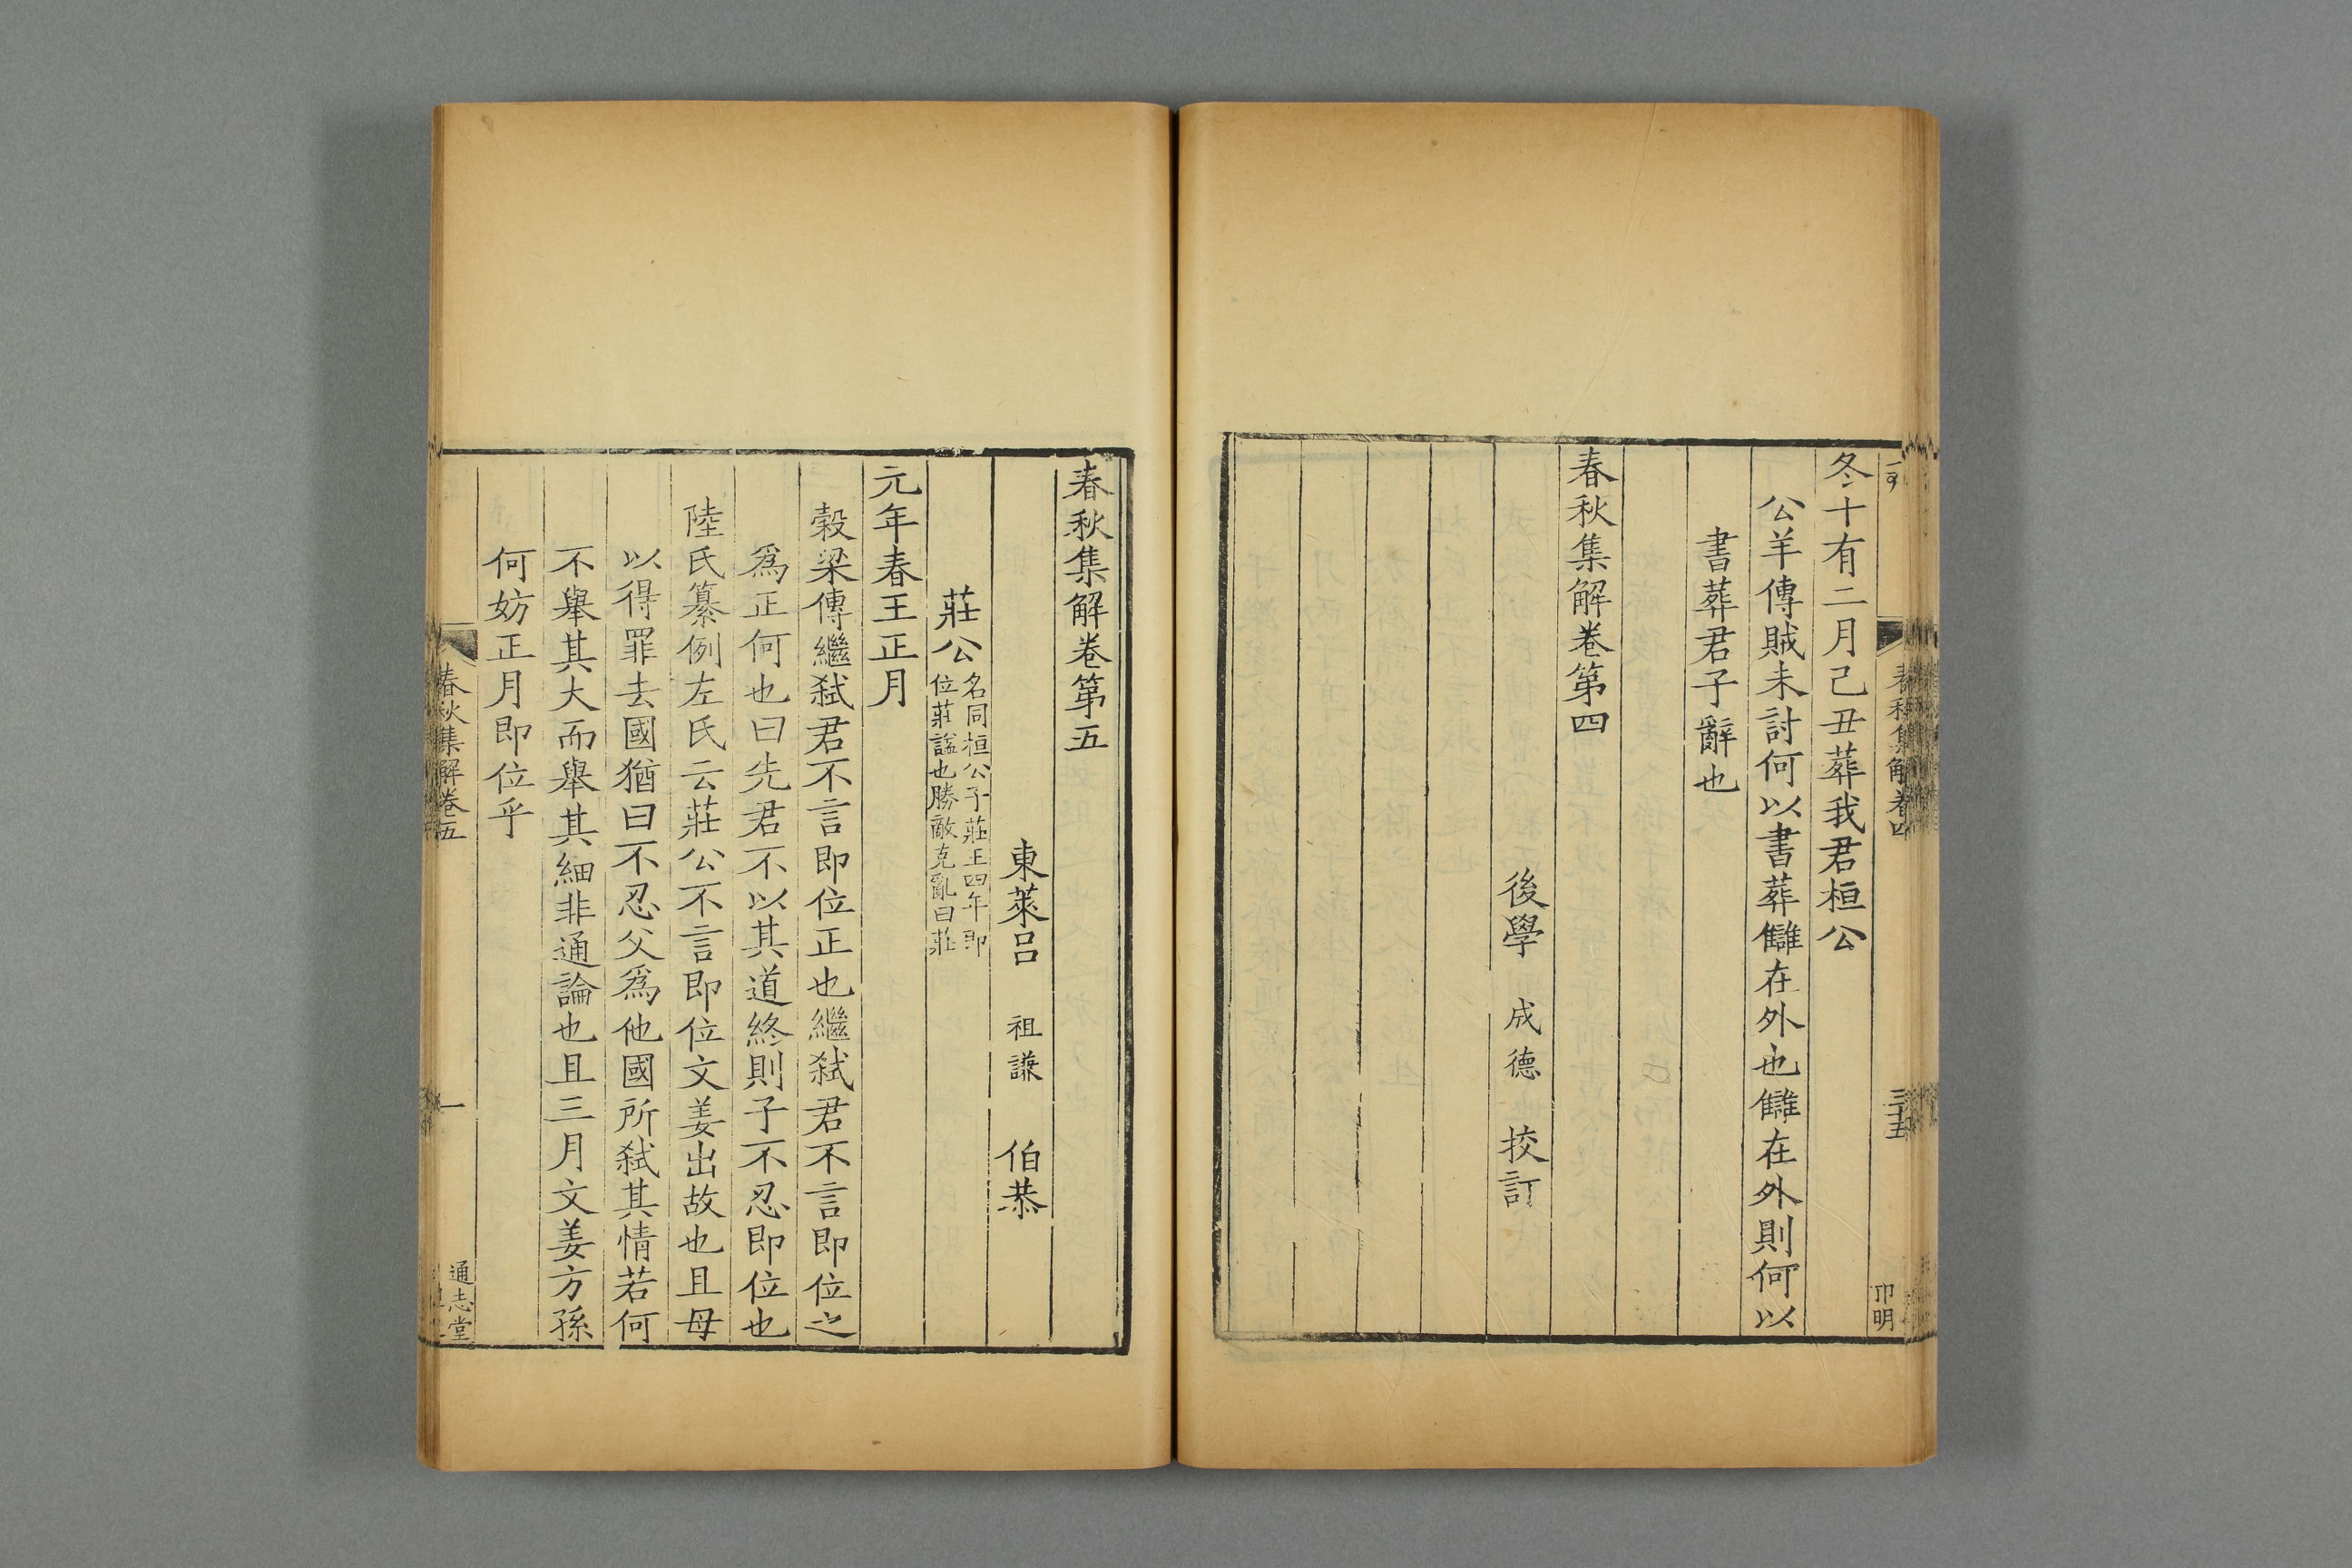 冬十有二月己丑葬我君桓公
公羊傳賊未討何以書葬讎在外也讎在外則何以
書葬君子辭也
春秋集解卷第四
後學 成德 挍訂
春秋集解卷四
三十五
卬明
春秋集解卷第五
東萊呂 祖謙 伯恭
莊公
名同桓公子莊王四年即
位莊諡也勝敵克亂曰莊
元年春王正月
榖梁傳繼弑君不言即位正也繼弑君不言即位之
爲正何也曰先君不以其道終則子不忍即位也
陸氏纂例左氏云莊公不言即位文姜出故也且母
以得罪去國猶曰不忍父爲他國所弑其情若何
不舉其大而舉其細非通論也且三月文姜方孫
何妨正月即位乎
春秋集解卷五
一
通志堂